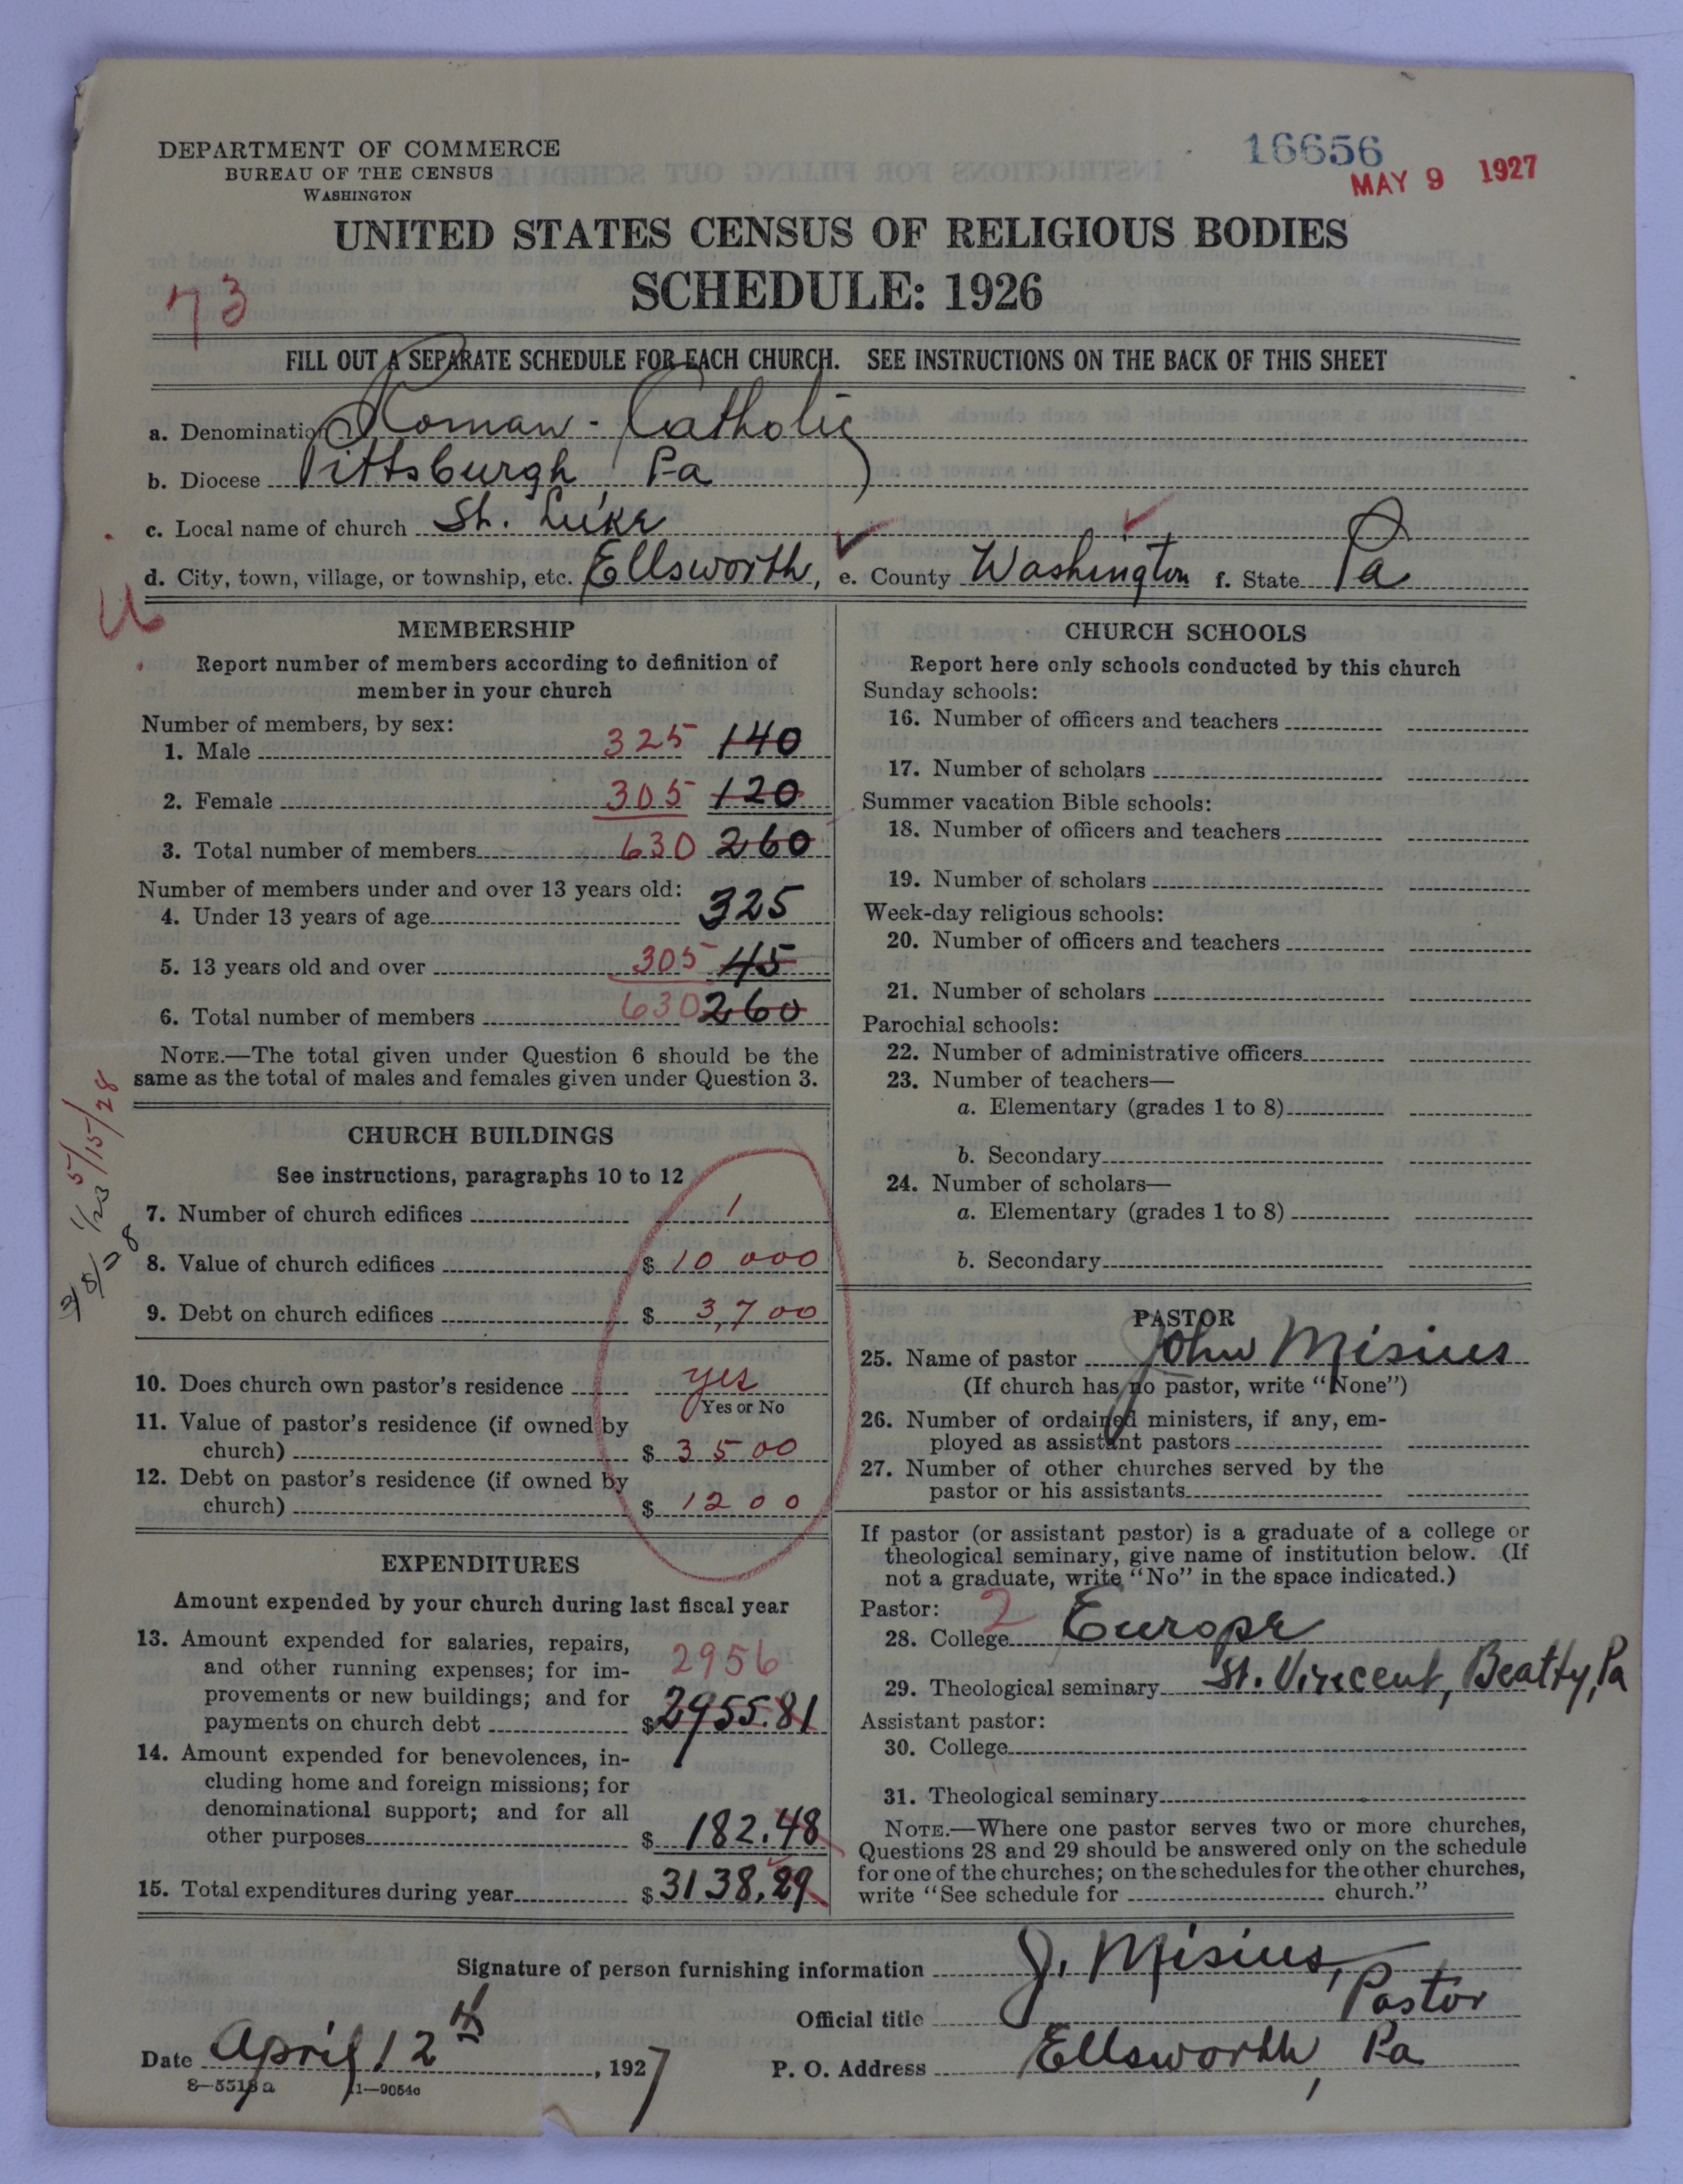 16656
MAY 9 1927
DEPARTMENT OF COMMERCE
BUREAU OF THE CENSUS
WASHINGTON
UNITED STATES CENSUS OF RELIGIOUS BODIES
SCHEDULE: 1926
73
FILL OUT A SEPARATE SCHEDULE FOR EACH CHURCH. SEE INSTRUCTIONS ON THE BACK OF THIS SHEET
a. Denomination Roman-Catholic
b. Diocese Pittsburgh Pa
c. Local name of church St. Luke
d. City, town, village, or township, etc. Ellsworth, e. County Washington f. State Pa
MEMBERSHIP
Report number of members according to definition of
member in your church
Number of members, by sex:
1. Male 325 140
2. Female 305 120
3. Total number of members 630 260
Number of members under and over 13 years old:
4. Under 13 years of age 325
5. 13 years old and over 305 45
6. Total number of members 630 260
NOTE.—The total given under Question 6 should be the
same as the total of males and females given under Question 3.
5/15/28
CHURCH BUILDINGS
See instructions, paragraphs 10 to 12
7. Number of church edifices 1
8. Value of church edifices $ 10 000
9. Debt on church edifices $ 3,700
10. Does church own pastor's residence yes
Yes or No
11. Value of pastor's residence (if owned by
church) $ 3500
12. Debt on pastor's residence (if owned by
church) $ 1200
EXPENDITURES
Amount expended by your church during last fiscal year
13. Amount expended for salaries, repairs,
and other running expenses; for im-
provements or new buildings; and for
payments on church debt 2956 $ 2955.81
14. Amount expended for benevolences, in-
cluding home and foreign missions; for
denominational support; and for all
other purposes $ 182.48
15. Total expenditures during year $ 3138.29
CHURCH SCHOOLS
Report here only schools conducted by this church
Sunday schools:
16. Number of officers and teachers
17. Number of scholars
Summer vacation Bible schools:
18. Number of officers and teachers
19. Number of scholars
Week-day religious schools:
20. Number of officers and teachers
21. Number of scholars
Parochial schools:
22. Number of administrative officers
23. Number of teachers—
a. Elementary (grades 1 to 8)
b. Secondary
24. Number of scholars—
a. Elementary (grades 1 to 8)
b. Secondary
PASTOR
25. Name of pastor John Misius
(If church has no pastor, write "None")
26. Number of ordained ministers, if any, em-
ployed as assistant pastors
27. Number of other churches served by the
pastor or his assistants
If pastor (or assistant pastor) is a graduate of a college or
theological seminary, give name of institution below. (If
not a graduate, write "No" in the space indicated.)
Pastor: 2
28. College Europe
29. Theological seminary St. Vincent, Beatty, Pa
Assistant pastor:
30. College
31. Theological seminary
NOTE.—Where one pastor serves two or more churches,
Questions 28 and 29 should be answered only on the schedule
for one of the churches; on the schedules for the other churches,
write "See schedule for church."
Signature of person furnishing information J. Misius,
Official title Pastor
Date April 12th, 1927 P. O. Address Ellsworth, Pa
8—5518a 11—9054c